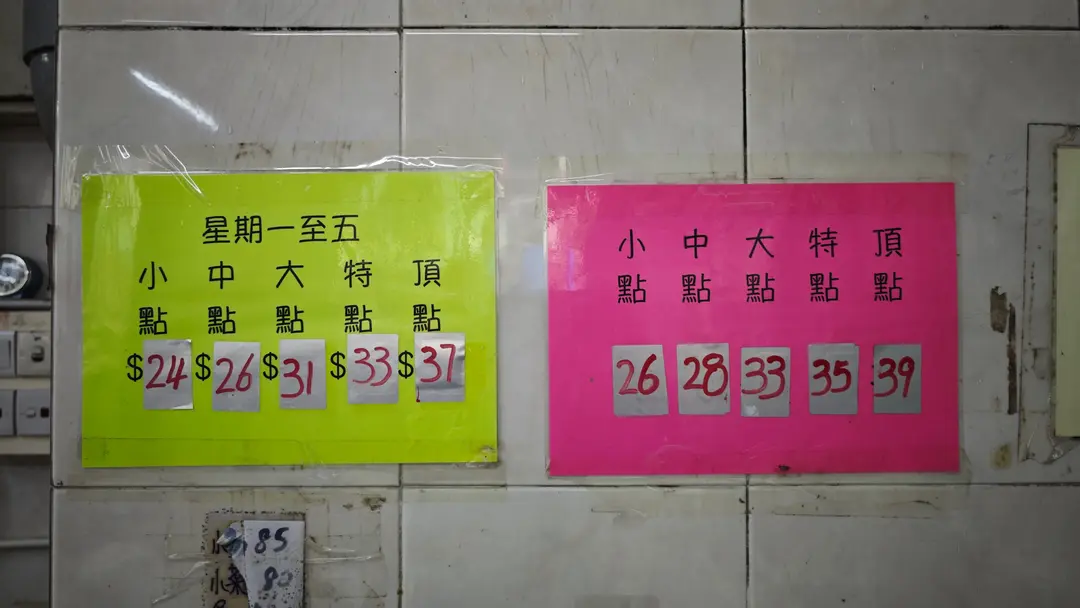 星期一至五
小點 中點 大點 特點 頂點
$24 $26 $31 $33 $37
小點 中點 大點 特點 頂點
26 28 33 35 39
85
80